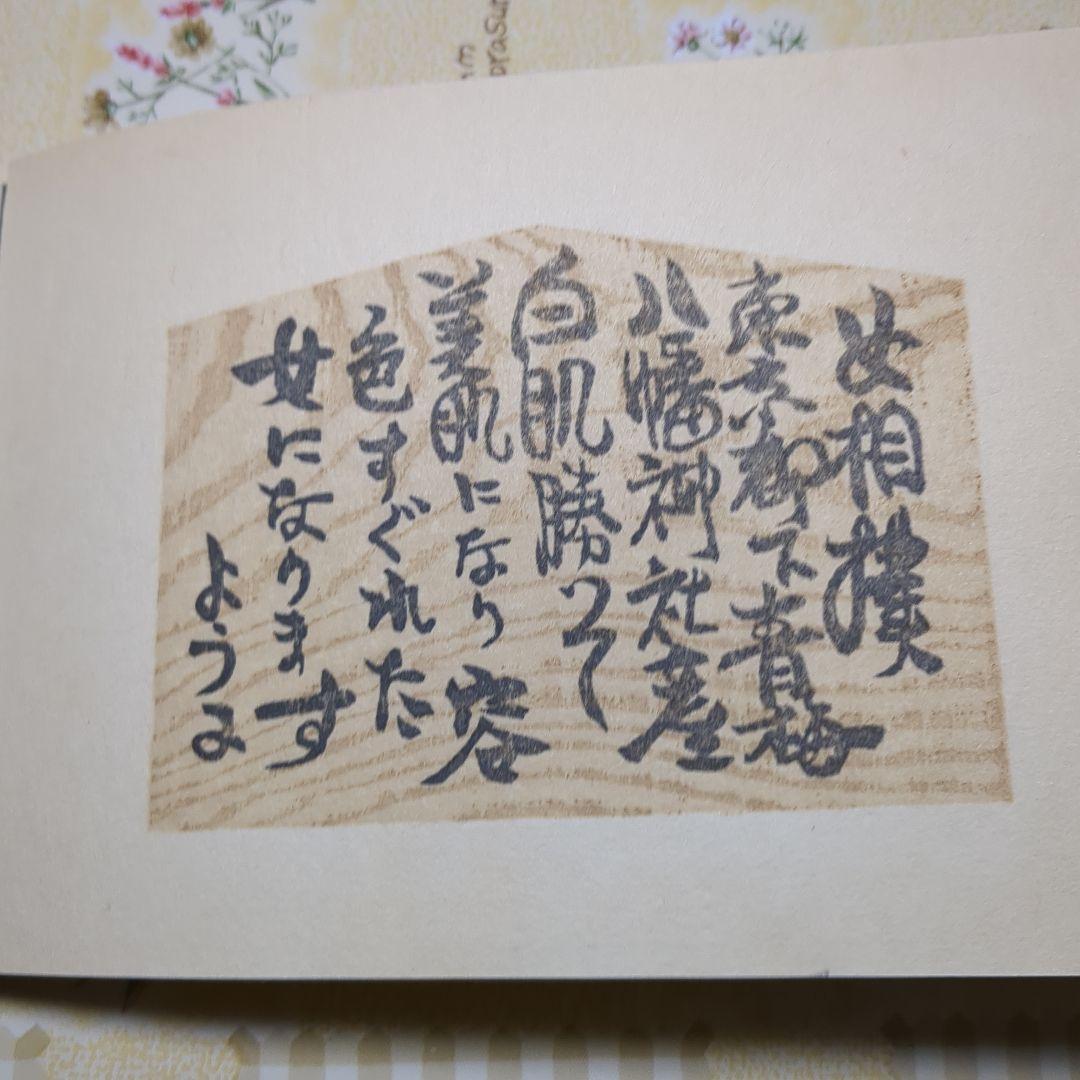 女相撲
東京都下青梅
八幡神社産
白肌勝って
美肌になり容
色すぐれた
女になります
ように